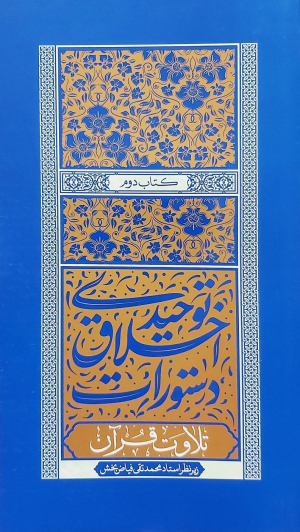 کتاب دوم
دستورات
اخلاق
توحیدی
تلاوت قرآن
زیر نظر استاد محمد تقی فیاض بخش